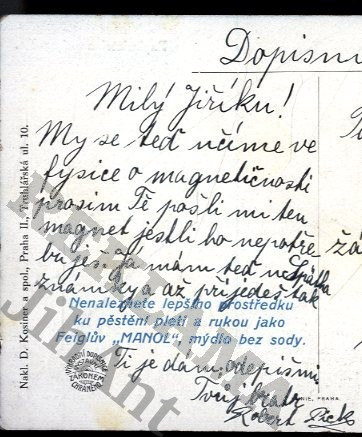 Dopisni
Milý Jiříku!
My se teď učíme ve
fysice o magnetičnosti
prosím Tě pošli mi ten
magnet jestli ho nepotře
buješ. Ja mám teď
známky a až přijedeš tak
Nenaleznete lepšího prostředku
ku pěstění pleti a rukou jako
Feiglův „MANOL“, mýdlo bez sody.
Ti je dám, odepiš mi
Tvůj bratr
Robert Pick
Nakl. D. Kosiner a spol., Praha II., Truhlářská ul. 10.